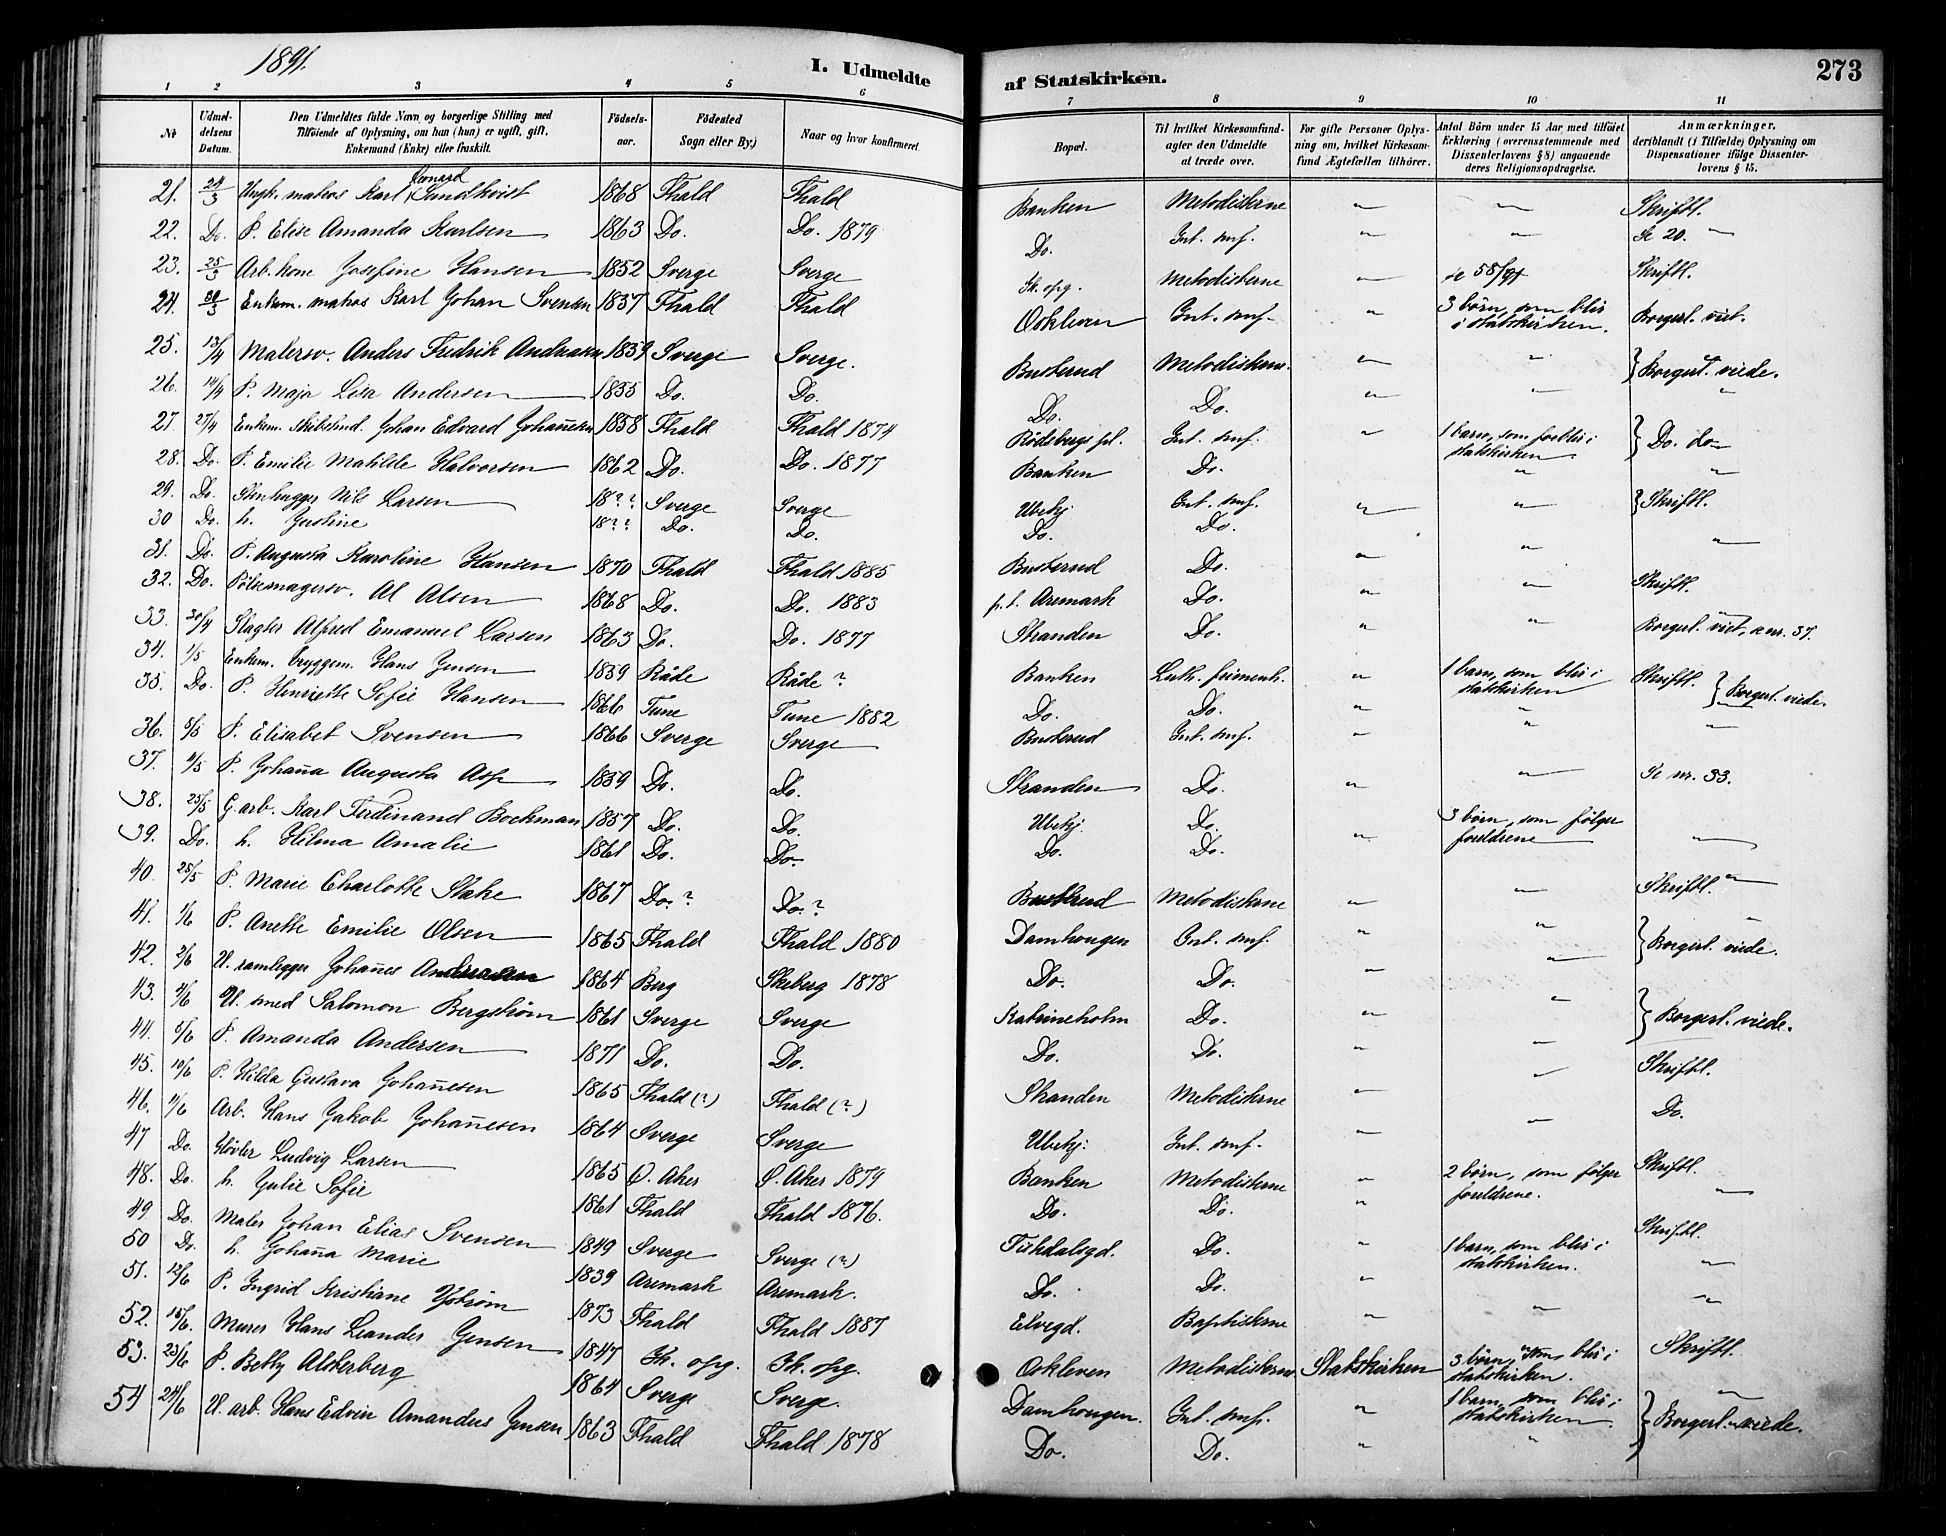 1891.
I. Udmeldte
af Statskirken.
273
1 2 3 4 5 6 7 8 9 10 11
No
Udmel-
delsens
Datum.
Den Udmeldtes fulde Navn og borgerlige Stilling med
Tilføiende af Oplysning, om han (hun) er ugift, gift,
Enkemand (Enke) eller fraskilt.
Fødsels-
aar.
Fødested
Sogn eller By.)
Naar og hvor konfirmeret
Bopæl.
Til hvilket Kirkesamfund
agter den Udmeldte
at træde over.
For gifte Personer Oplys-
ning om, hvilket Kirkesam-
fund Ægtefællen tilhører.
Antal Børn under 15 Aar med tilføiet
Erklæring (overensstemmende med
Dissenterlovens § 8) angaaende
deres Religionsopdragelse.
Anmærkninger,
deriblandt (i Tilfælde) Oplysning om
Dispensationer ifølge Dissenter-
lovens § 15.
21. 24/3 Ungk. matros Karl Sundkvist 1868 Fhald Fhald Banken Metodisterne " " Skriftl.
22. Do. P. Elise Amanda Karlsen 1863 Do. Do. 1879 Do. Int. smf. " " Se 20. "
23. 25/3 Arb. kone Josefine Hansen 1852 Sverge Sverge Ik. opg. Metodisterne " se 58/91 Skriftl.
24. 30/3 Enkem. matros Karl Johan Svensen 1837 Fhald Fhald Oskleven Int. smf. " 3 børn, som blir i statskirken. Borgerl. viet.
25. 13/4 Malersv. Anders Fredrik Andreasen 1859 Sverge Sverge. Busterud Metodisterne. " " } Borgerl. viede.
26. 14/4 P. Maja Lisa Andersen 1835 Do. Do. Do. Do. " " "
27. 27/4 Enkem. skibstmd. Johan Edvard Johannesen 1858 Fhald Fhald 1874 Rødsbergs pl. Int. smf. " 1 barn, som forblir i statskirken } Do. do
28. Do. P. Emilie Matilde Halvorsen 1862 Do. Do. 1877 Banken Do. " "
29. Do. Stenhugger Nils Larsen 18?? Sverge Sverge Ubekj. Int. smf. " " } Skriftl.
30 Do. h. Justine 18?? Do. Do. Do. Do.
31. Do. P. Augusta Karoline Hansen 1870 Fhald Fhald 1885 Busterud Do. " " "
32. Do. Pølsemagersv. Al Alsen 1868 Do. Do. 1883 p.t. Aremark Do. " " Skriftl.
33. 30/4 Slagter Alfred Emanuel Larsen 1863 Do. Do. 1877 Stranden Do. " " Borgerl. viet, se nr. 37.
34. 1/5 Enkem. bryggem. Hans Jensen 1839 Råde Råde ? Banken Luth. frimenh. " 1 barn, som blir i statskirken Skriftl. } Borgerl. viede.
35. Do. P. Henriette Sofie Hansen 1866 Tune Tune 1882 Do. Do. " "
36. 5/5 P. Elisabet Svensen 1866 Sverge Sverge Busterud Int. smf. " " "
37. 9/5 P. Johanna Augusta Asp 1839 Do. Do. Stranden Do. " " Se nr. 33.
38. 25/5 G. arb. Karl Ferdinand Bockman 1857 Do. Do. Ubekj. Do. 3 børn, som følger foreldrene
39. Do. h. Hilma Amalie 1861 Do. Do. Do. Do. " "
40. 25/5 P. Marie Charlotte Stake 1867 Do. ? Do. ? Busterud Metodisterne " " Skriftl. "
41. 1/6 P. Anette Emilie Olsen 1865 Fhald Fhald 1880 Damhougen Int. smf. " " } Borgerl. viede.
42. 2/6 U. ramlegger Johannes Andreasen 1864 Berg Skeberg 1878 Do. Do. " "
43. 4/6 U. smed Salomon Bergstrøm 1861 Sverge Sverge Katrineholm Do. " " } Borgerl. viede.
44. 5/6 P. Amanda Andersen 1871 Do. Do. Do. Do. " "
45. 10/6 P. Hilda Gustava Johannesen 1865 Fhald (?) Fhald (?) Stranden Metodisterne " " Skriftl.
46. 11/6 Arb. Hans Jakob Johannesen 1864 Sverge Sverge Ubekj. Int. smf. " " Do.
47 Do. Høvler Ludvig Larsen 1865 Ø. Aker Ø. Aker 1879 Banken Metodisterne " 2 børn, som følger foreldrene. Skriftl.
48. Do. h. Julie Sofie 1861 Fhald Fhald 1876. Do. Do. " "
49. Do. Maler Johan Elias Svensen 1849 Sverge Sverge (?) Tistedalsgd. Do. " 1 barn, som blir i statskirken. Skriftl.
50 Do. h. Johanna Marie 1839 Aremark Aremark. Do. Do. " "
51. 12/6 P. Ingrid Kristiane Ystrøm 1873 Fhald Fhald 1887 Elvegd. Baptisterne " " "
52. 15/6. Murer Hans Leander Jensen 1847 Ik. opg. Ik. opg. Oskleven Metodisterne Statskirken 3 børn, som blir i statskirken. Skriftl.
53. 23/6 P. Betty Alsterberg 1864 Sverge Sverge. Damhougen. Int. smf. " 1 barn, som blir i statskirken. } Borgerl. viede.
54 24/6 U. arb. Hans Edvin Amandus Jensen 1863 Fhald Fhald 1878 Do. Do. " "